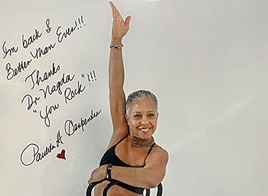 Im back &
Better than Ever!!!
Thanks
Dr Nagda
"You Rock"!!!